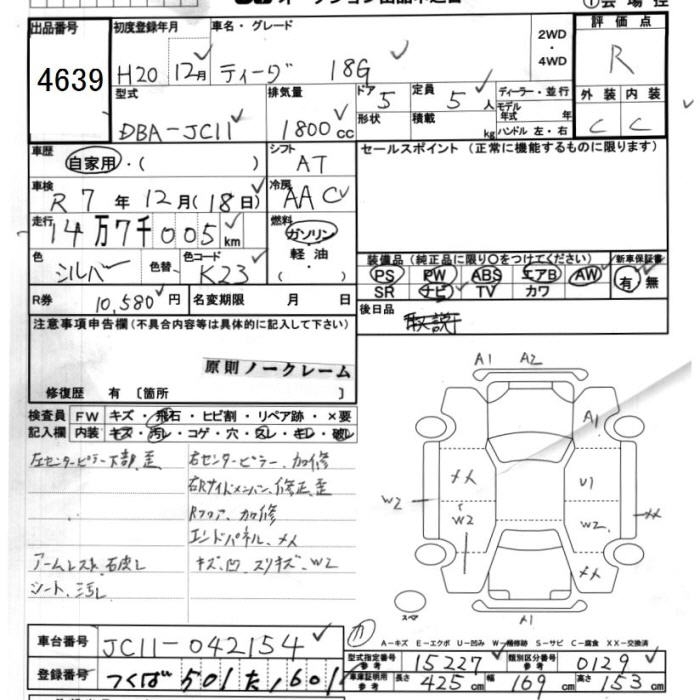 出品番号 初度登録年月 車名・グレード 2WD・4WD 評価点
4639 H20 12月 ティーダ 18G R
型式 排気量 ドア 定員 ディーラー・並行 外装 内装
DBA-JC11 1800cc 5 5人 モデル年式 年 C C
形状 積載 kg ハンドル 左・右
車歴 自家用・( ) シフト AT セールスポイント (正常に機能するものに限ります)
車検 R7年12月(18日) 冷房 AAC
走行 14万7千005km 燃料 ガソリン・軽油・( )
色 シルバー 色替 色コード K23
装備品(純正品に限り○をつけてください) 新車保証書
PS PW ABS エアB AW 有・無
SR ナビ TV カワ
R券 10,580円 名変期限 月 日 後日品 取説
注意事項申告欄(不具合内容等は具体的に記入して下さい)
原則ノークレーム
修復歴 有〔箇所 〕
検査員記入欄 FW キズ・飛石・ヒビ割・リペア跡・×要
内装 キズ・汚レ・コゲ・穴・スレ・キレ・破レ
左センターピラー下部、歪 右センターピラー、加修
右Rサイドメンバー、修正、歪
Rフロア、加修
エンドパネル、メメ
アームレスト、右破レ キズ、凹、スリキズ、W2
シート、汚レ
A1 A2
A1
メメ U1
W2 W2 W2 メメ
メメ
スペア A1
A-キズ E-エクボ U-凹み W-補修跡 S-サビ C-腐食 XX-交換済
車台番号 JC11-042154 型式指定番号参考 15227 類別区分番号参考 0129
登録番号 つくば501た1601 車庫証明用参考 長さ 425cm 幅 169cm 高さ 153cm